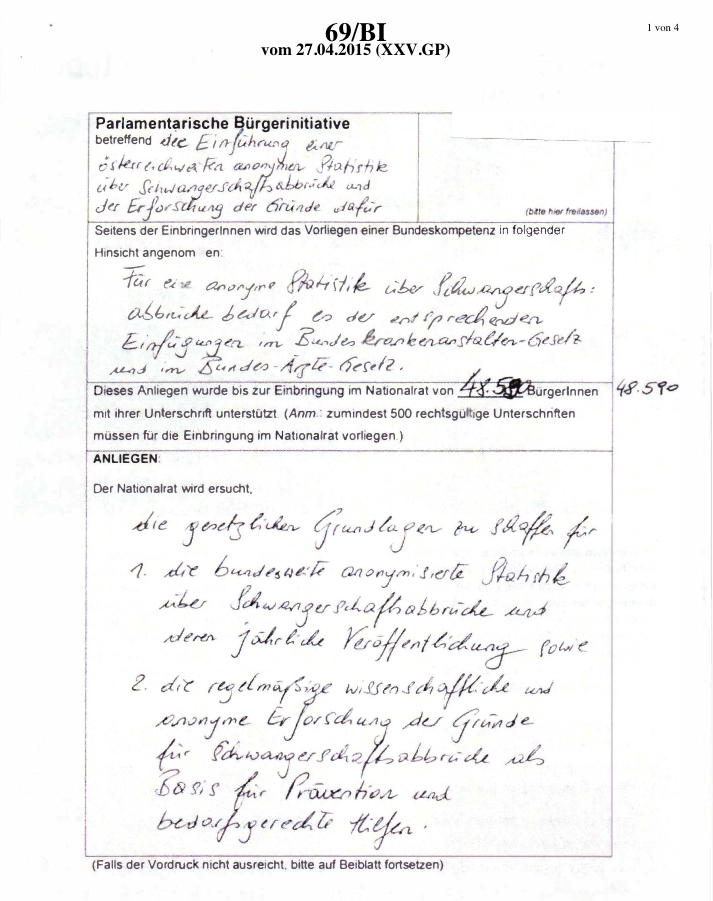 69/BI
vom 27.04.2015 (XXV.GP)
1 von 4
Parlamentarische Bürgerinitiative
betreffend die Einführung einer
österreichweiten anonymen Statistik
über Schwangerschaftsabbrüche und
der Erforschung der Gründe dafür
(bitte hier freilassen)
Seitens der EinbringerInnen wird das Vorliegen einer Bundeskompetenz in folgender
Hinsicht angenom en:
Für eine anonyme Statistik über Schwangerschafts:
abbrüche bedarf es der entsprechenden
Einfügungen im Bundeskrankenanstalten-Gesetz
und im Bundes-Ärzte-Gesetz.
Dieses Anliegen wurde bis zur Einbringung im Nationalrat von 48.590 BürgerInnen 48.590
mit ihrer Unterschrift unterstützt. (Anm.: zumindest 500 rechtsgültige Unterschriften
müssen für die Einbringung im Nationalrat vorliegen.)
ANLIEGEN:
Der Nationalrat wird ersucht,
die gesetzlichen Grundlagen zu schaffen für
1. die bundesweite anonymisierte Statistik
über Schwangerschaftsabbrüche und
deren jährliche Veröffentlichung sowie
2. die regelmäßige wissenschaftliche und
anonyme Erforschung der Gründe
für Schwangerschaftsabbrüche als
Basis für Prävention und
bedarfsgerechte Hilfen.
(Falls der Vordruck nicht ausreicht, bitte auf Beiblatt fortsetzen)